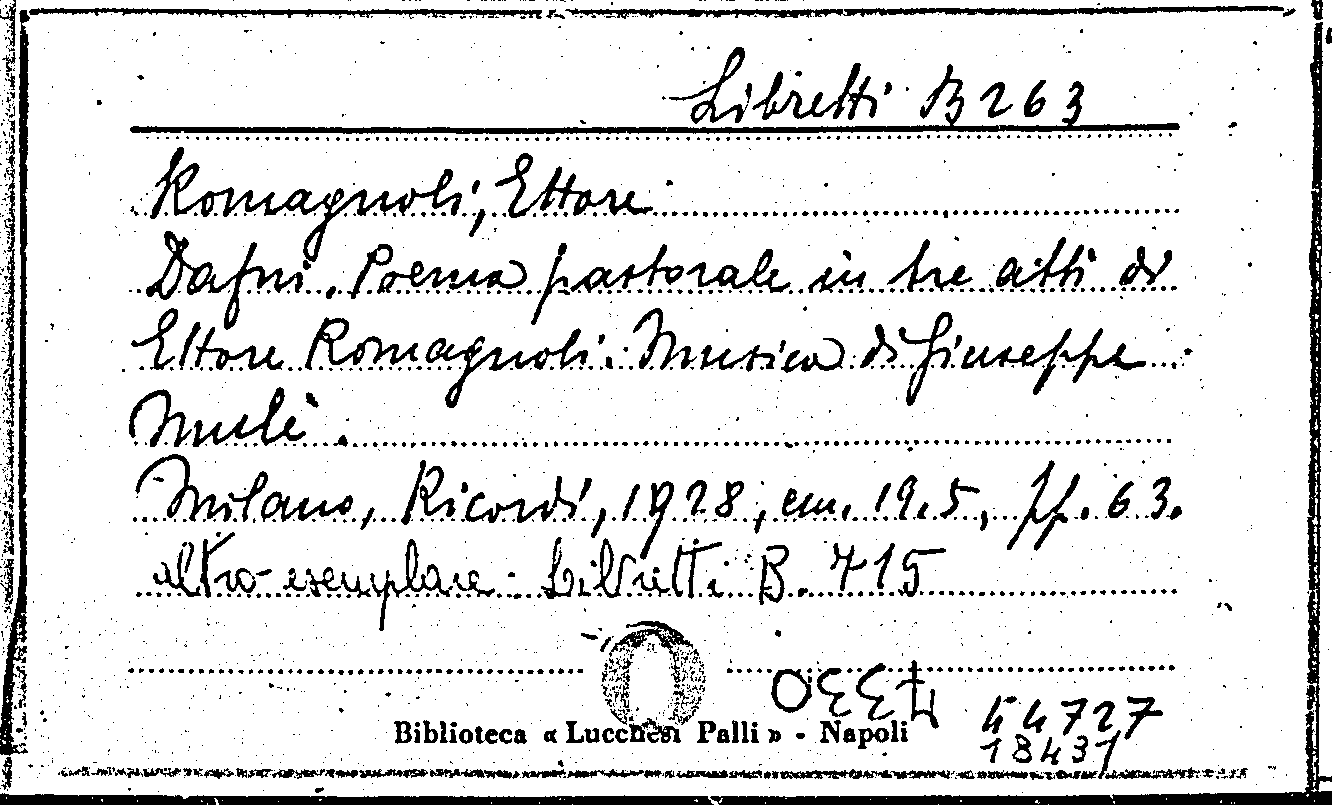 Libretti B 263
Romagnoli, Ettore
Dafni. Poema pastorale in tre atti di
Ettore Romagnoli. Musica di Giuseppe
Mulè.
Milano, Ricordi, 1928, cm. 19.5, pp. 63.
altro esemplare: Libretti B. 715
Biblioteca « Lucchesi Palli » - Napoli
18431